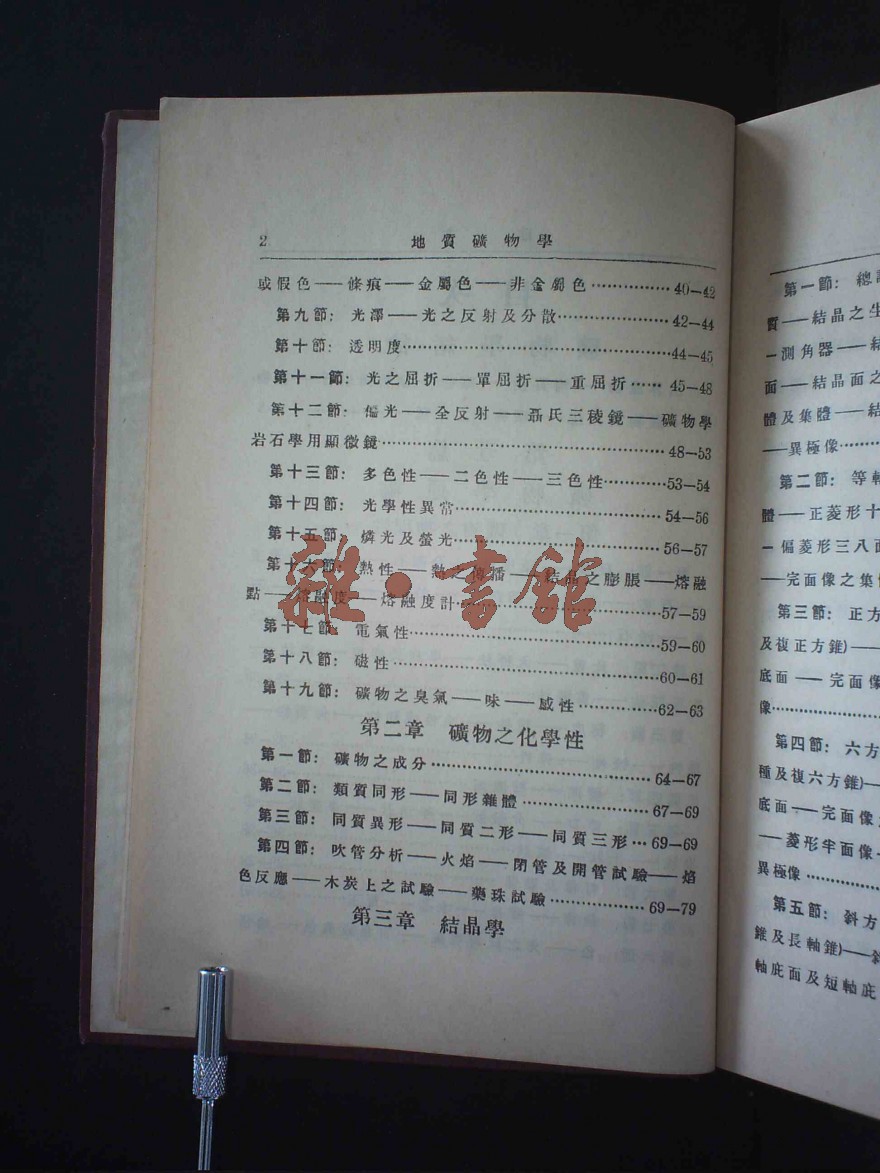 2 地質礦物學
或假色——條痕——金屬色——非金屬色……………40—42
第九節：光澤——光之反射及分散……………………42—44
第十節：透明度…………………………………………44—45
第十一節：光之屈折——單屈折——重屈折……45—48
第十二節：偏光——全反射——聶氏三稜鏡——礦物學
岩石學用顯微鏡…………………………………………48—53
第十三節：多色性——二色性——三色性…………53—54
第十四節：光學性異常…………………………………54—56
第十五節：燐光及螢光…………………………………56—57
第十六節：熱性——熱之傳播——結晶之膨脹——熔融
點——熔融度——熔融度計……………………………57—59
第十七節：電氣性………………………………………59—60
第十八節：磁性…………………………………………60—61
第十九節：礦物之臭氣——味——感性……………62—63
第二章 礦物之化學性
第一節：礦物之成分……………………………………64—67
第二節：類質同形——同形雜體………………………67—69
第三節：同質異形——同質二形——同質三形…69—69
第四節：吹管分析——火焰——閉管及開管試驗——焰
色反應——木炭上之試驗——藥珠試驗……………69—79
第三章 結晶學
雜·書館
第一節：總
質——結晶之生
—測角器——結
面——結晶面之
體及集體——結
——異極像…………
第二節：等軸
體——正菱形十
—偏菱形三八面
——完面像之集
第三節：正方
及複正方錐)——
底面——完面像
像……………………
第四節：六方
種及複六方錐)—
底面——完面像
——菱形半面像
異極像……………
第五節：斜方
錐及長軸錐)——斜
軸庇面及短軸庇